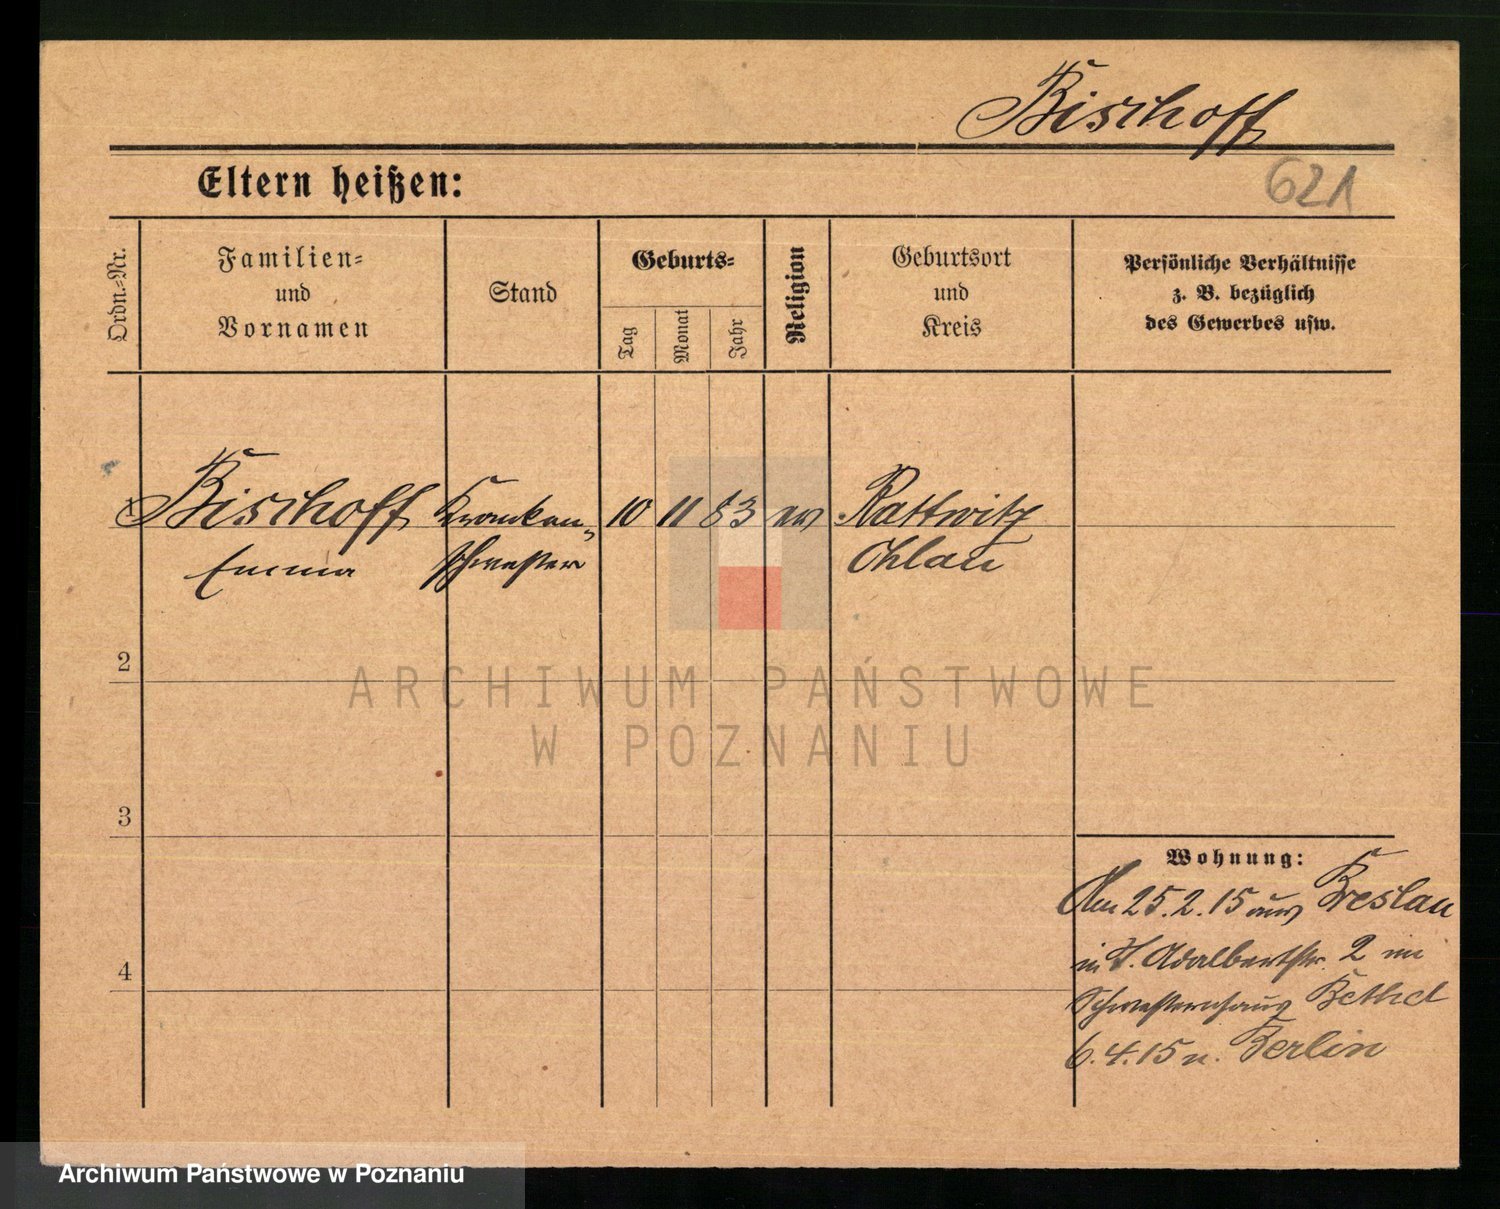 Bischoff
621
Eltern heißen:
Ordn.-Nr.
Familien-
und
Vornamen
Stand
Geburts-
Tag
Monat
Jahr
Religion
Geburtsort
und
Kreis
Persönliche Verhältnisse
z. B. bezüglich
des Gewerbes usw.
1 Bischoff Kranken- 10 11 83 ev Rattwitz
Emma schwester Ohlau
2
3
4
ARCHIWUM PAŃSTWOWE
W POZNANIU
Wohnung:
Am 25.2.15 aus Breslau
in Adalbertstr. 2 im
Schwesternhaus Bethel
6.4.15 n. Berlin
Archiwum Państwowe w Poznaniu